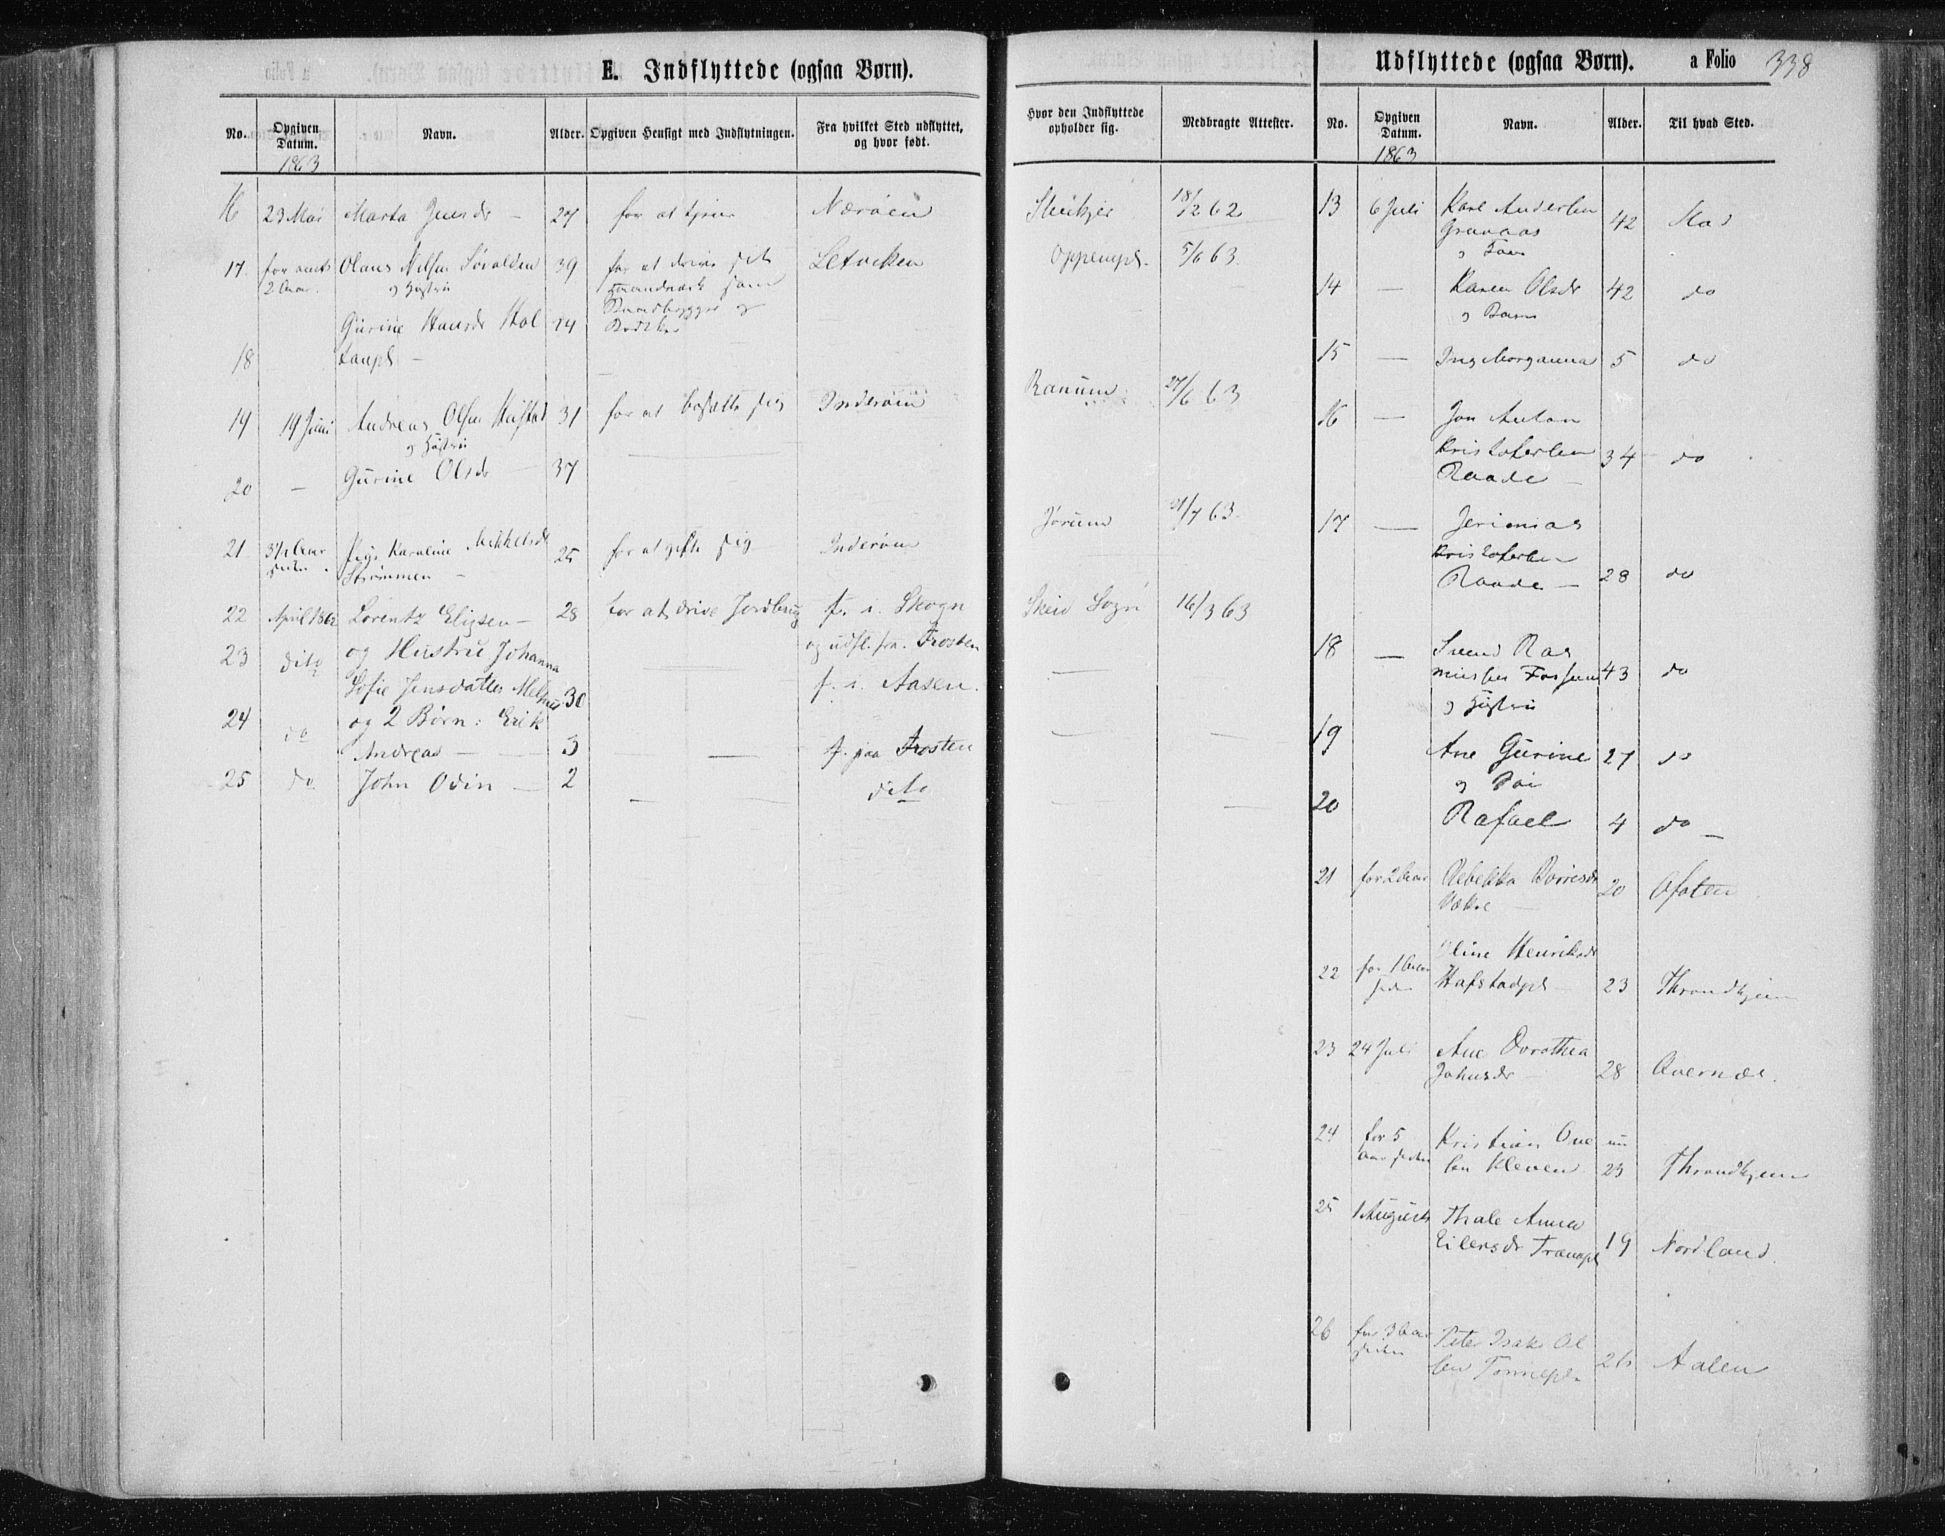 E. Indflyttede (ogsaa Børn).
No. Opgiven Datum. Navn. Alder. Opgiven Hensigt med Indflytningen. Fra hvilket Sted udflyttet, og hvor født. Hvor den Indflyttede opholder sig. Medbragte Attester.
1863
16 23 Mai Marta Jensdr – 27 for at tjene Nærøen 18/2 62
17 for omts 2 Aar. Olaus Nilsen 39 for at drive sit Letviken Opplempl. 5/6 63.
og Hustru Haandværk som
Gurine Hansdr Hol 24 Baadbygger og
18 taupl – Bødker
19 19 Juni Andreas Olsen 31 for at bosætte sig Inderøen Ranum 27/6 63
og Hustru
20 – Gurine Olsdr 37
21 3½ Aar siden Karoline Mikkelsdr 25 for at gifte sig Inderøen Jørum 21/7 63.
Strømmen –
22 April 1862 Lorentz Eligsen – 28 for at drive Jordbrug f. i. Skogn Skeid Sogn 16/3 63
og udfl. fra. Frosten
23 dito og Hustru Johanna
Sofie Jensdatter 30 f. i. Aasen.
24 do og 2 Børn: Erik
Andreas – 3 – f. paa Frosten
25 do John Odin – 2 – dito
Udflyttede (ogsaa Børn). a Folio 338
No. Opgiven Datum. Navn. Alder. Til hvad Sted.
1863
13 6 Juli Karl Andersen 42
Granaas
og Fam
14 – Karen Olsdr 42 do
og Barn
15 – Ingeborganna 5 do
16 – Jon Anton
Kristofersen 34 do
Raade –
17 – Jerimias
Kristofersen
Raade – 28 do
18 – Svend Ras
mussen Fossum 43 do
og Hustru
19 Ane Gurine 27 do
og
20 Rafael 4 do –
21 for 2 Aar Rebekka 20 Ofoten
22 for 1 Aar siden Oline Henriksdr
Hafstadpl – 23 Throndhjem
23 24 Juli Ane Dorothea
Johnsdr – 28 Avernæs.
24 for 5 aar siden Kristian Ove nu
sen Kleven 23 Throndhjem
25 1 August Thale Anna
Eilersdr Tranapl 19 Nordland.
26 for 3 Aar siden Peter Isak Ol
sen 26 Aalen